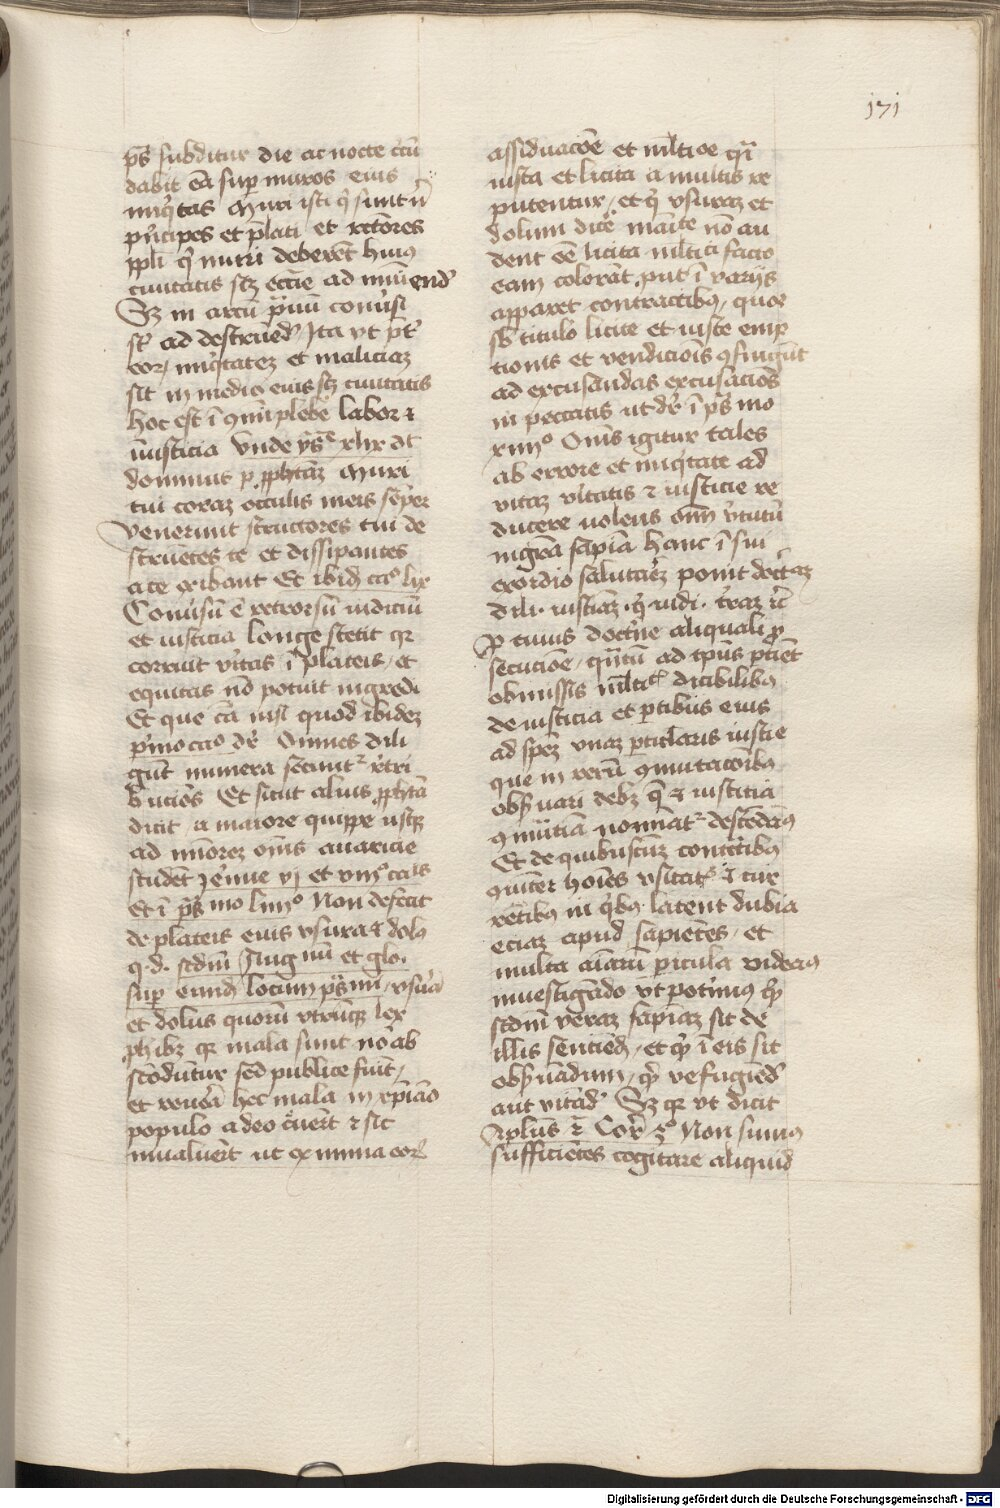 171
ps̄ subditur die ac nocte
dabit eā sup muros eius
iniq̄tas Muri isti q̄ sunt
pn̄cipes et p̄lati et rectores
ppl̄i q̄ muri deberēt huiꝰ
ciuitatis scꝫ eccīe ad muniend
Sꝫ in arcū pͥuū conūsi
st̄ ad destruēd Ita vt
eorꝫ iniq̄tatez et maliciaz
sit in medio eius scꝫ ciuitatis
hoc est ī plebe labor ⁊
iniusticia Vnde ys̄ xlix
dominus p pphetā Muri
tui coraz occulis meis semper
Venerunt structores tui de
struētes te et dissipantes
a te exibant Et ibid̄ caº lix
Conūsū ē retrorsū iudiciū
et iusticia longe stetit qr
corruit ūitas ī plateis / et
equitas nō potuit ingredi
Et que cā nisi quod ibidez
pͥmo caº dr̄ Omnes dili
gūt munera secunt̄ rͤtri
bucōes Et sicut alius pphetā
dicit / a maiore quippe usqꝫ
ad mīorez oēs auaricie
studēt Jēmie vj et viijº
Et ī ps̄ mo liiijº Non defecit
de plateis eius vsura ⁊ dolꝰ
q. d. scdm̄ Aug nū et glo.
sup eund̄ locum / vsūa
et dolus quorū vtrūqꝫ lex
phibꝫ qr mala sunt nō ab
scōduntur sed publice fiūt /
et reuēa hec mala in xp̄iāo
populo adeo ⁊ sic
inualuer̄t ut ex nimia eorꝫ
assiduacōe et
iusta et licita a multis re
putentur / et q̄ vsuraz et
dolum dicē nō au
dent eē licita facio
eam colorāt put ī varijs
apparet contractibꝰ / quos
sb̄ titulo licite et iuste emp
tionis et vendiciōis ꝯfingūt
ad excusandas excusaciōes
in peccatis ut dr̄ ī ps̄ mo
Om̄s igitur tales
ab errore et iniq̄tate ad
vitaz ūitatis ⁊ iusticie re
ducere uolens om̄ ūtutū
sapīa hanc ī sui
exordio salutārez ponit doctͥnaz
dili. iustiāz. q̄ iudi. t̄raz
P cuius doctͥne aliquali p
secutiōe / qūtū ad p̄ns ptīet
obmissis dicibilibꝰ
de iusticia et ptibus eius
ad spēz vnaz pticlaris iusticie
que in rerū ꝯmutacōibꝰ
obs̄uari debꝫ q̄ ⁊ iusticia
ꝯmutīa nominat̄ descēdāꝰ
Et de quibuscūqꝫ contctībꝰ
ꝯmuniter hoīes vsitat̄ ⁊ cur
rētibꝰ in q̄bꝰ latent dubia
eciaz apud sapiētes / et
multa aīarū picula videāꝰ
inuestigādo vt potīmꝰ
scdm̄ veraz sapiāz sit de
illis sentiēd / et qͥd ī eis sit
obs̄uādum / qͥd ve fugiēd
aut vitād Sꝫ qr ut dicit
Aplus ij Cor̄ 3º Non sumꝰ
sufficiētes cogitare aliquid
Digitalisierung gefördert durch die Deutsche Forschungsgemeinschaft - DFG